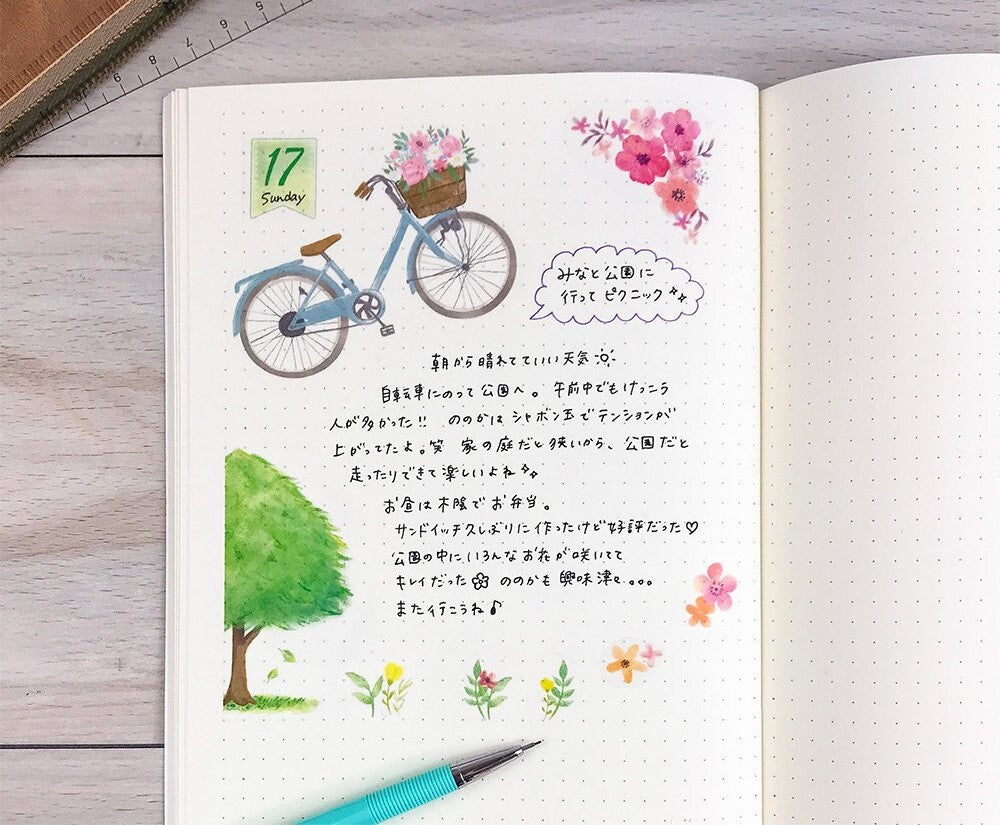 17
Sunday
みなと公園に
行って ピクニック
朝から晴れてていい天気
自転車にのって公園へ。午前中でもけっこう
人が多かった!! ののかは シャボン玉でテンションが
上がってたよ。笑 家の庭だと狭いから、公園だと
走ったりできて楽しいよね
お昼は木陰でお弁当。
サンドイッチ久しぶりに作ったけど好評だった♡
公園の中にいろんなお花が咲いてて
キレイだった ののかも 興味津々...。
また行こうね♪
6 7 8 9